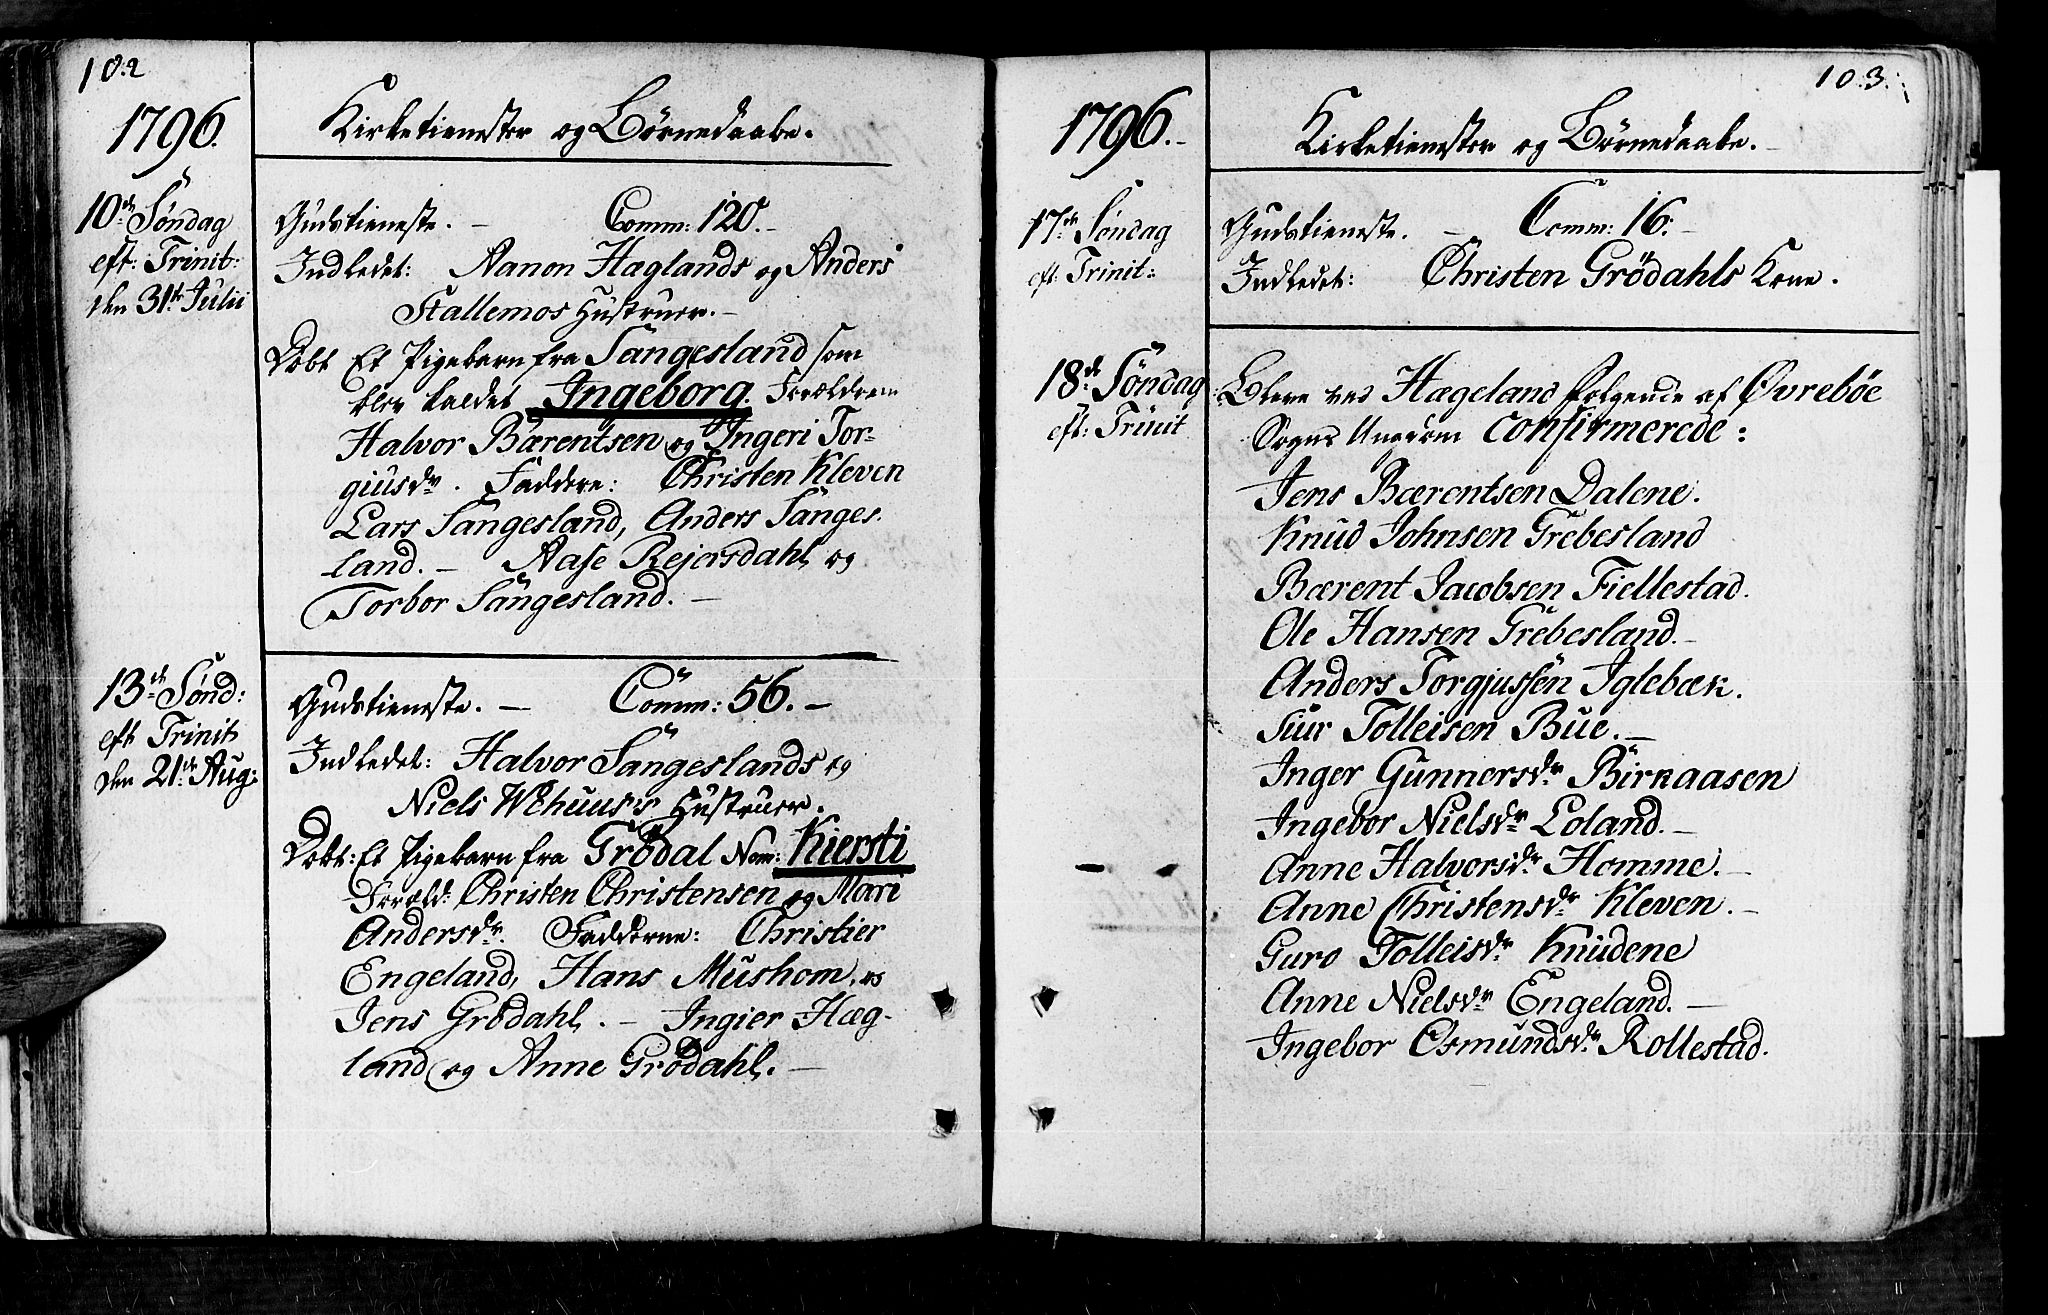 102
1796.
Kirketienester og Børnedaabe.
10de Søndag
eft: Trinit:
den 31te Julii
Gudstieneste. — Comm: 120. -
Indledet: Aanon Hæglands og Anders
Stallemos Hustruer. -
Døbt Et Pigebarn fra Sangesland som
blev kaldet Ingeborg. Forældrene
Halvor Bærentsen og Ingeri Tor-
giusdr. Faddere: Christen Kleven
Lars Sangesland, Anders Sanges-
land. - Aase Rejersdahl og
Torbor Sangesland. -
13de Sønd:
eft Trinit
den 21de Aug:
Gudstieneste. — Comm: 56. —
Indledet: Halvor Sangeslands og
Niels Wehuus's Hustruer.
Døbt: Et Pigebarn fra Grödal Nom: Kiersti
Foræld: Christen Christensen og Mari
Andersdr. Fadderne: Christier
Engeland, Hans Mushom, og
Jens Grödahl. - Ingier Hæg-
land og Anne Grödahl. —
103.
1796. -
Kirketienester og Børnedaabe. -
17de Søndag
eft: Trinit:
Gudstieneste. - Comm: 16. -
Indledet: Christen Grödahls Kone.
18de Søndag
eft: Trinit
Bleve ved Hægeland følgende af Øvrebøe
Sogns Ungdom confirmerede:
Jens Bærentsen Dalene.
Knud Johnsen Grebesland
Bærent Jacobsen Fiellestad.
Ole Hansen Grebesland. -
Anders Torgjussen Iglebæk.
Siur Tolleisen Bue. —
Inger Gunnersdr Birkaasen
Ingebor Nielsdr Loland. —
Anne Halvorsdr Homme. -
Anne Christensdr Kleven. -
Guro Tolleisdr Knudene
Anne Nielsdr Engeland. —
Ingebor Osmundsdr Rollestad.